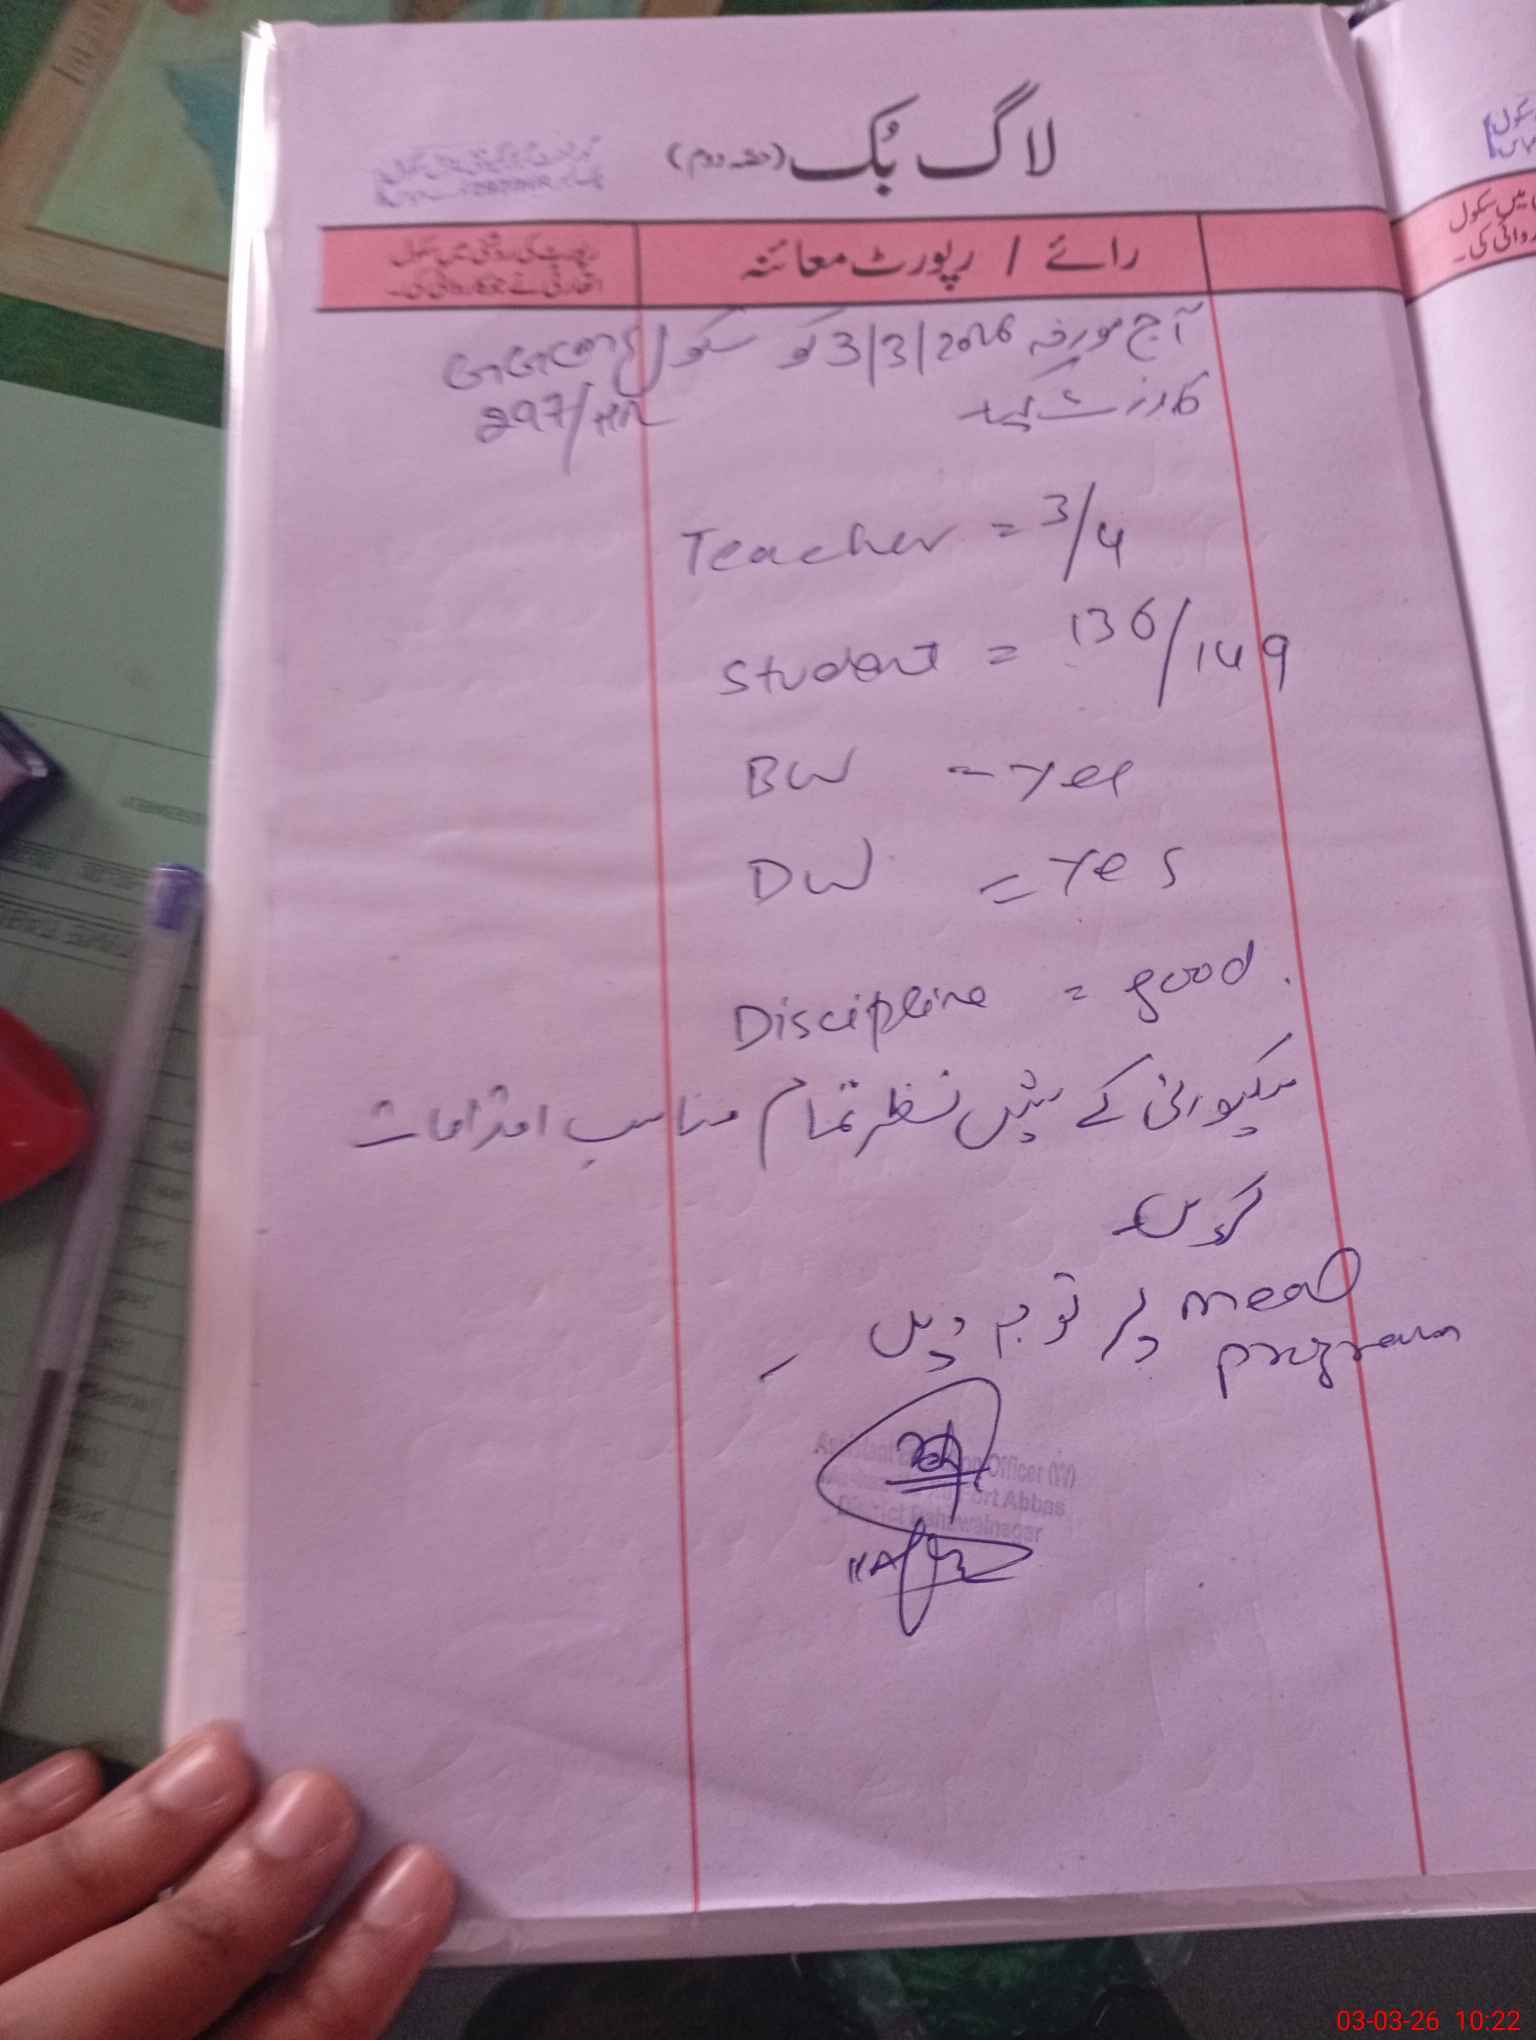 لاگ بُک (حصہ دوم)
رائے / رپورٹ معائنہ
رپورٹ کی روشنی میں سکول
اتھارٹی نے جو کاروائی کی۔
آج مورخہ 3/3/2026 کو سکول
297/HR
کا وزٹ کیا
Teacher = 3/4
Student = 136/149
BW = yes
DW = yes
Discipline = good.
سیکیورٹی کے پیش نظر تمام مناسب اقدامات
کریں
meal program پر توجہ دیں ۔
Assistant Education Officer (W)
Fort Abbas
District Bahawalnagar
میں سکول
روائی کی۔
03-03-26 10:22